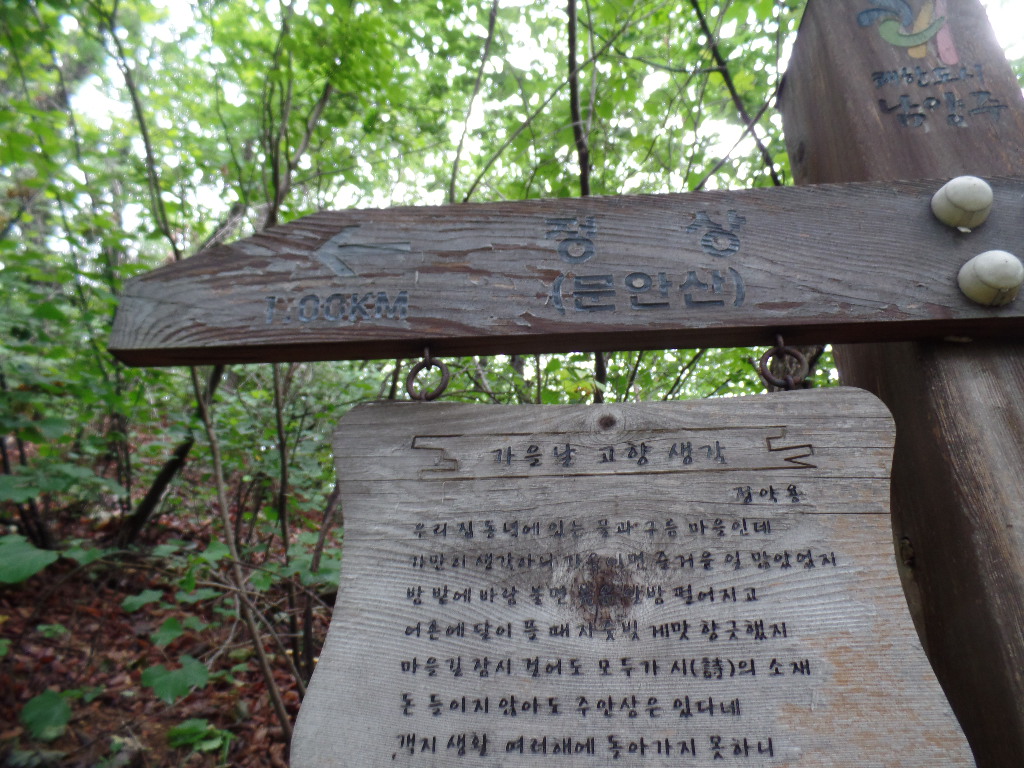 남양주
정 상
(문안산)
1.00KM
가을날 고향 생각
정약용
우리 집 동녘에 있는 물과 구름 마을인데
가만히 생각하니 즐거운 일 많았었지
밤 밭에 바람 불면 밤 떨어지고
어촌에 달이 뜰 때 게맛 향긋했지
마을길 잠시 걸어도 모두가 시(詩)의 소재
돈 들이지 않아도 주안상은 있다네
객지 생활 여러해에 돌아가지 못하니